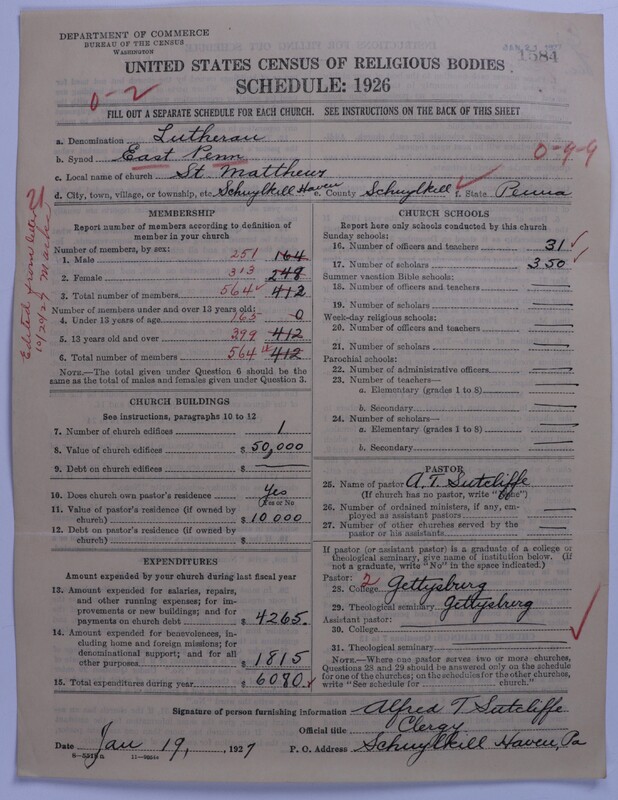 DEPARTMENT OF COMMERCE
BUREAU OF THE CENSUS
WASHINGTON
1584
UNITED STATES CENSUS OF RELIGIOUS BODIES
SCHEDULE: 1926
0-2
FILL OUT A SEPARATE SCHEDULE FOR EACH CHURCH. SEE INSTRUCTIONS ON THE BACK OF THIS SHEET
a. Denomination Lutheran
b. Synod East Penn 0-9-9
c. Local name of church St. Matthews
d. City, town, village, or township, etc. Schuylkill Haven e. County Schuylkill f. State Penna
Edited from letter
10/20/27 Mark
MEMBERSHIP
Report number of members according to definition of
member in your church
Number of members, by sex:
1. Male 251 164
2. Female 313 248
3. Total number of members 564 412
Number of members under and over 13 years old:
4. Under 13 years of age 165 0
5. 13 years old and over 399 412
6. Total number of members 564 412
NOTE.—The total given under Question 6 should be the
same as the total of males and females given under Question 3.
CHURCH BUILDINGS
See instructions, paragraphs 10 to 12
7. Number of church edifices 1
8. Value of church edifices $ 50,000
9. Debt on church edifices $
10. Does church own pastor's residence Yes
(Yes or No)
11. Value of pastor's residence (if owned by
church) $ 10 000
12. Debt on pastor's residence (if owned by
church) $
EXPENDITURES
Amount expended by your church during last fiscal year
13. Amount expended for salaries, repairs,
and other running expenses; for im-
provements or new buildings; and for
payments on church debt $ 4265.
14. Amount expended for benevolences, in-
cluding home and foreign missions; for
denominational support; and for all
other purposes $ 1815
15. Total expenditures during year $ 6080
CHURCH SCHOOLS
Report here only schools conducted by this church
Sunday schools:
16. Number of officers and teachers 31
17. Number of scholars 350
Summer vacation Bible schools:
18. Number of officers and teachers
19. Number of scholars
Week-day religious schools:
20. Number of officers and teachers
21. Number of scholars
Parochial schools:
22. Number of administrative officers
23. Number of teachers—
a. Elementary (grades 1 to 8)
b. Secondary
24. Number of scholars—
a. Elementary (grades 1 to 8)
b. Secondary
PASTOR
25. Name of pastor A. T. Sutcliffe
(If church has no pastor, write "None")
26. Number of ordained ministers, if any, em-
ployed as assistant pastors
27. Number of other churches served by the
pastor or his assistants
If pastor (or assistant pastor) is a graduate of a college or
theological seminary, give name of institution below. (If
not a graduate, write "No" in the space indicated.)
Pastor: 2
28. College Gettysburg
29. Theological seminary Gettysburg
Assistant pastor:
30. College
31. Theological seminary
NOTE.—Where one pastor serves two or more churches,
Questions 28 and 29 should be answered only on the schedule
for one of the churches; on the schedules for the other churches,
write "See schedule for church."
Signature of person furnishing information Alfred T. Sutcliffe
Official title Clergy
Date Jan 19, , 1927 P. O. Address Schuylkill Haven, Pa